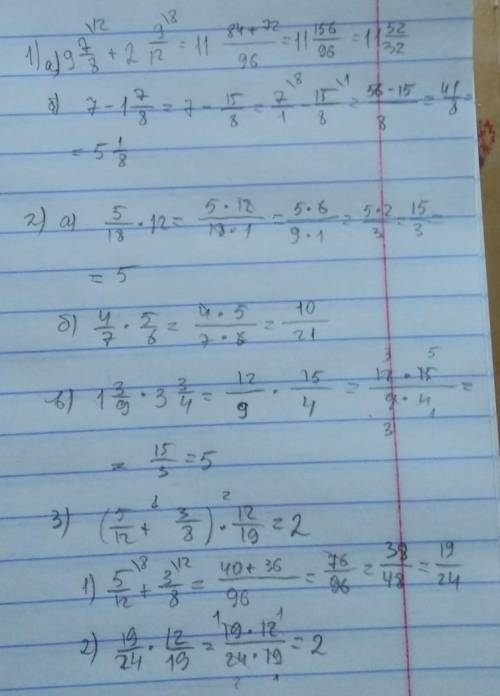 1) а) 9 7/8 \12 + 2 9/12 \8 = 11 (84 + 72)/96 = 11 156/96 = 11 52/32
б) 7 - 1 7/8 = 7 - 15/8 = 7/1 \8 - 15/8 \1 = (56 - 15)/8 = 41/8 =
= 5 1/8
2) а) 5/18 · 12 = (5 · 12)/(18 · 1) = (5 · 6)/(9 · 1) = (5 · 2)/3 = 15/3 =
= 5
б) 4/7 · 5/6 = (4 · 5)/(7 · 6) = 10/21
в) 1 3/9 · 3 3/4 = 12/9 · 15/4 = (12 · 15)/(9 · 4) =
= 15/3 = 5
3) (5/12 + 3/8) · 12/19 = 2
1) 5/12 \8 + 3/8 \12 = (40 + 36)/96 = 76/96 = 38/48 = 19/24
2) 19/24 · 12/19 = (19 · 12)/(24 · 19) = 2